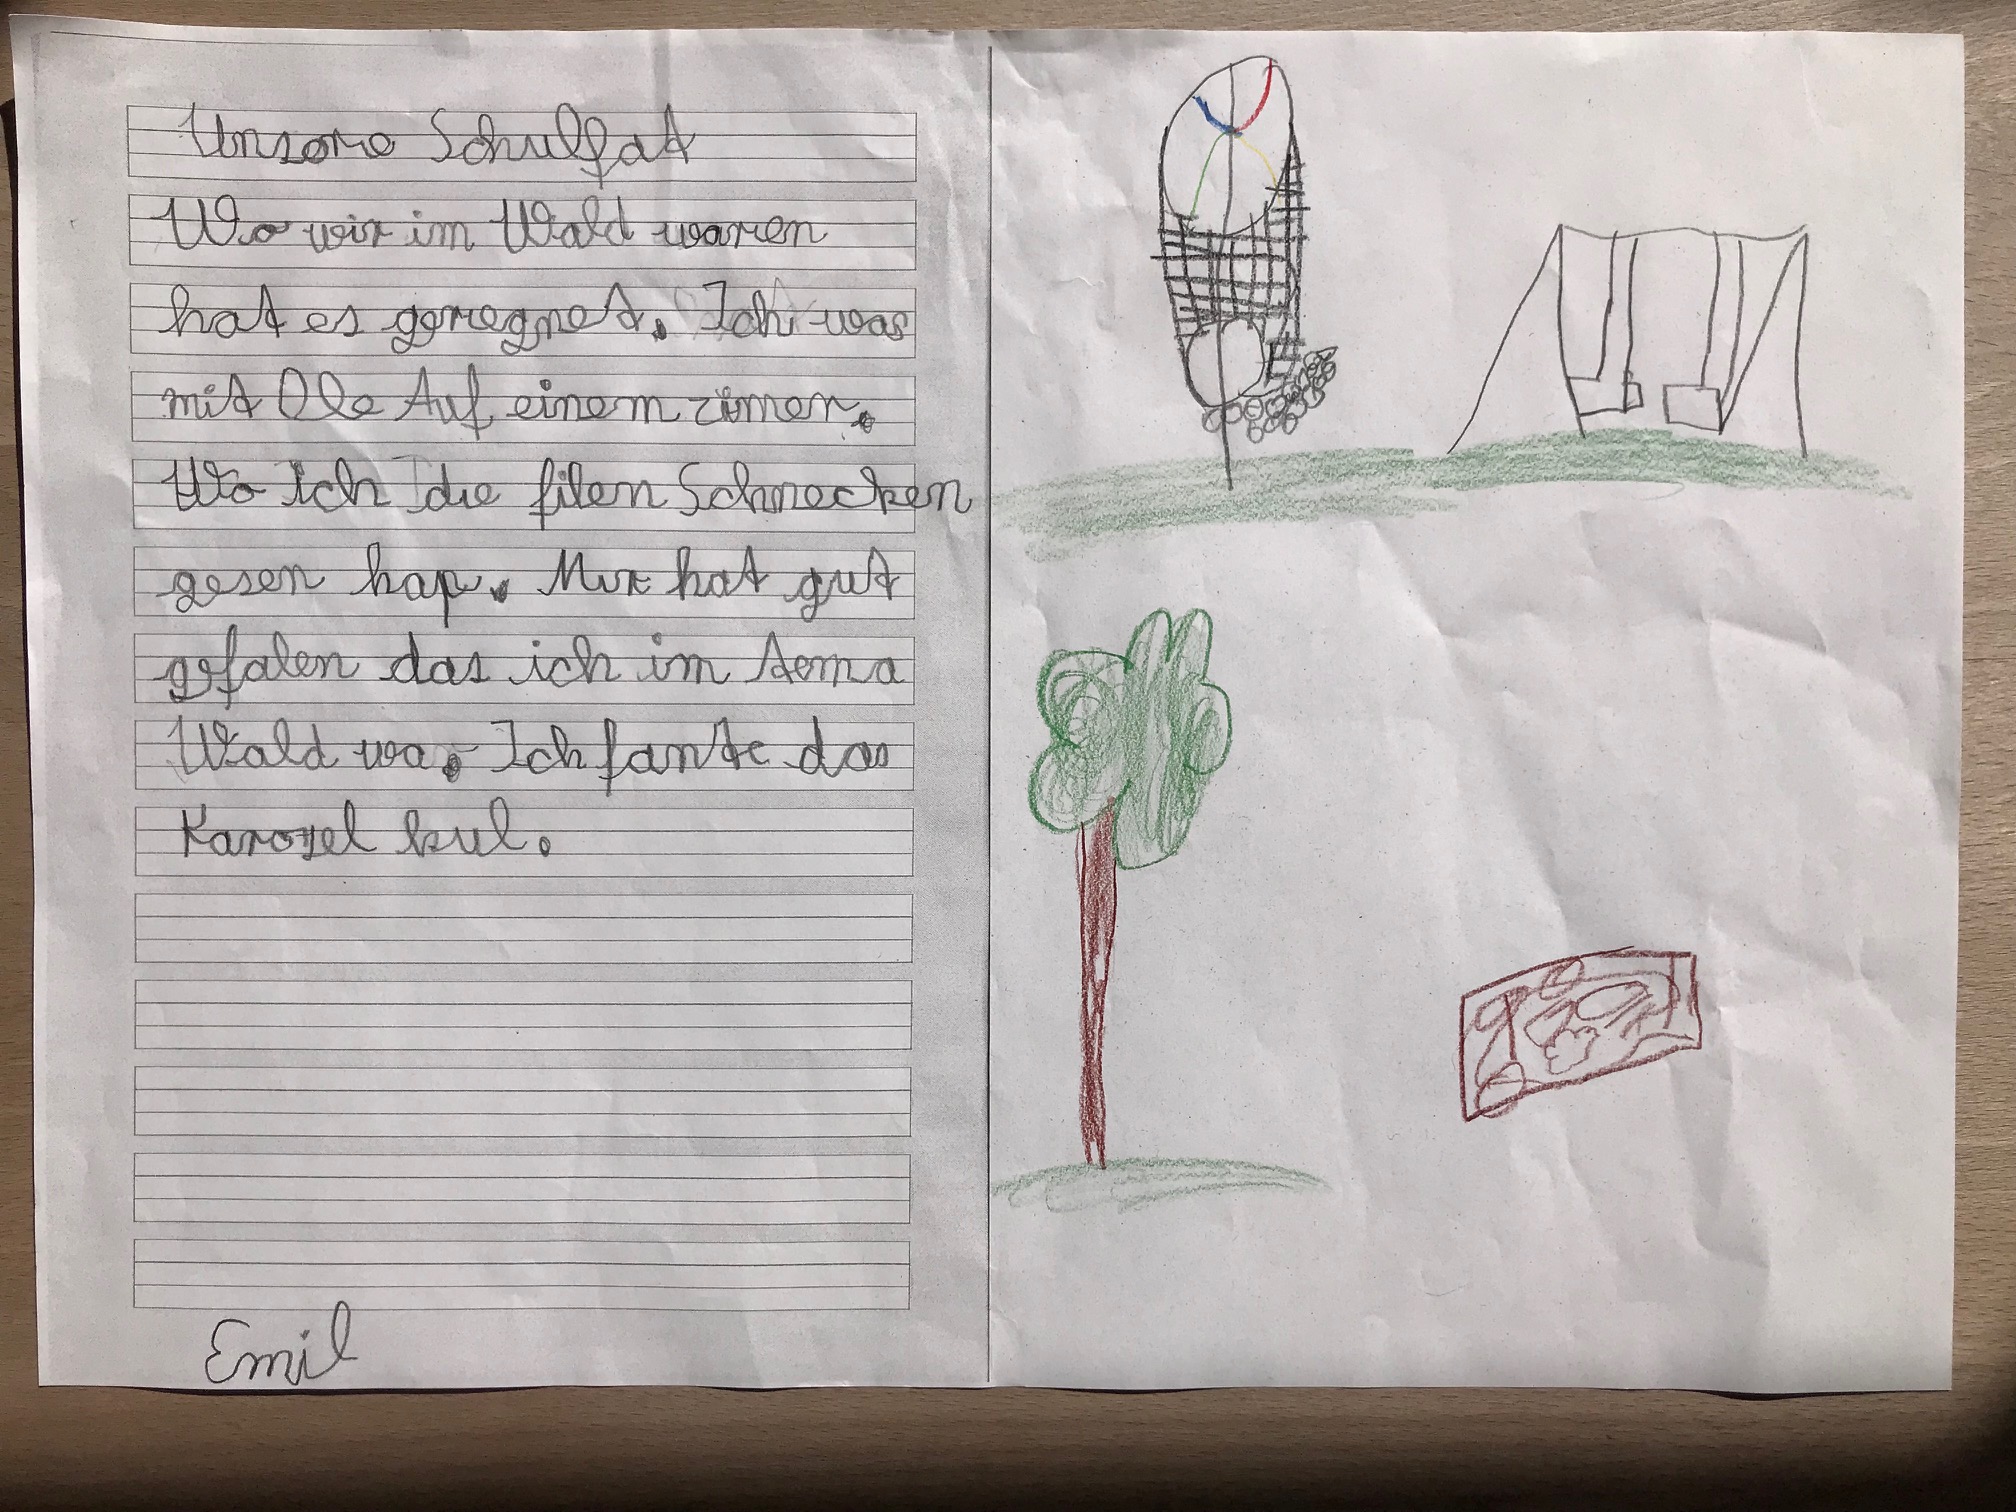 Unsere Schulfat
Wo wir im Wald waren
hat es geregnet. Ich war
mit Ole Auf einem zimer.
Wo ich die filen Schnecken
gesen hap. Mir hat gut
gefalen das ich im tema
Wald war. Ich fante das
Karozel kul.
Emil